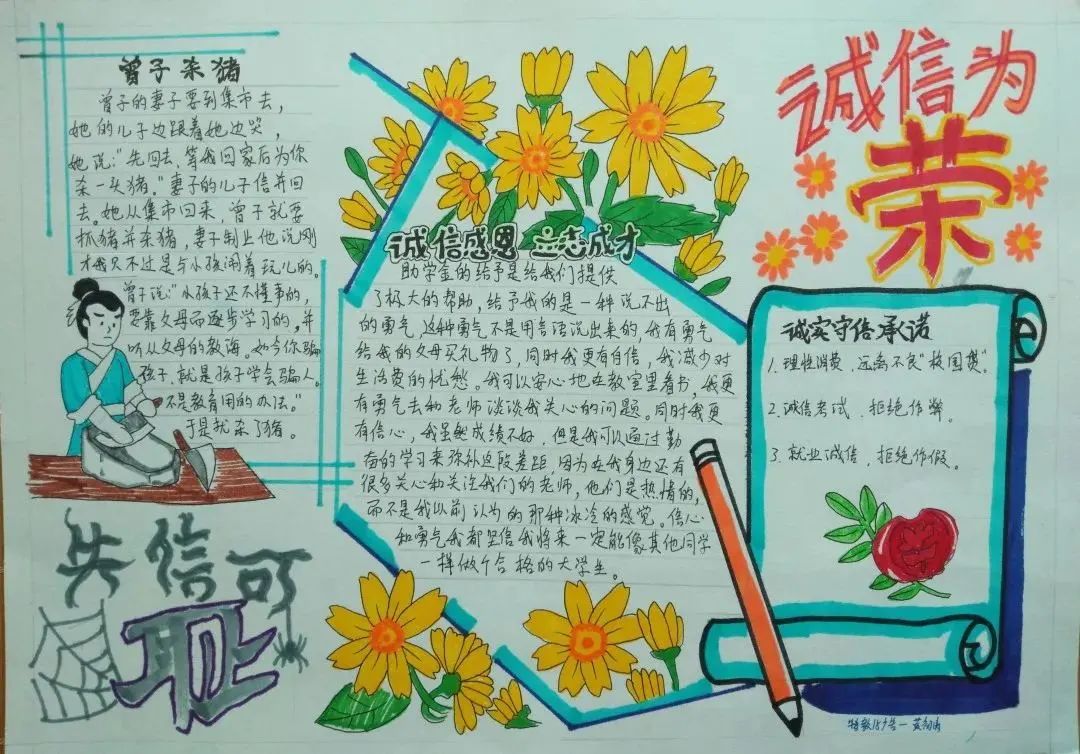 曾子杀猪
曾子的妻子要到集市去，
她的儿子边跟着她边哭，
她说：“先回去，等我回家后为你
杀一头猪。”妻子的儿子信并回
去。她从集市回来，曾子就要
抓猪并杀猪，妻子制止他说刚
才我只不过是与小孩闹着玩儿的。
曾子说：“小孩子还不懂事的，
要靠父母而逐步学习的，并
听从父母的教诲。如今你骗
孩子，就是孩子学会骗人。
不是教育用的办法。”
于是就杀了猪。
失信可
耻
诚信感恩 立志成才
助学金的给予是给我们提供
了极大的帮助，给予我的是一种说不出
的勇气，这种勇气不是用言语说出来的，我有勇气
给我的父母买礼物了，同时我更有自信，我减少对
生活费的忧愁。我可以安心地在教室里看书，我更
有勇气去和老师谈谈我关心的问题。同时我更
有信心，我虽然成绩不好，但是我可以通过勤
奋的学习来弥补这段差距，因为在我身边还有
很多关心和关注我们的老师，他们是热情的，
而不是我以前认为的那种冰冷的感觉。信心
和勇气我都坚信我将来一定能像其他同学
一样做个合格的大学生。
诚信为
荣
诚实守信承诺
1. 理性消费，远离不良“校园贷”。
2. 诚信考试，拒绝作弊。
3. 就业诚信，拒绝作假。